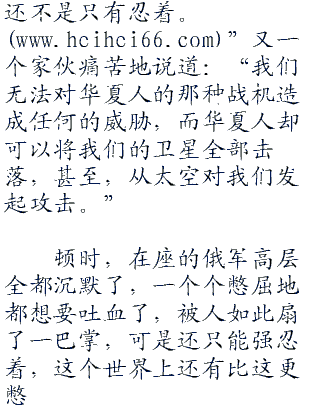 还不是只有忍着。
(www.hcihci66.com)” 又一
个家伙痛苦地说道：“我们
无法对华夏人的那种战机造
成任何的威胁，而华夏人却
可以将我们的卫星全部击
落，甚至，从太空对我们发
起攻击。”
顿时，在座的俄军高层
全都沉默了，一个个憋屈地
都想要吐血了，被人如此扇
了一巴掌，可是还只能强忍
着，这个世界上还有比这更
憋